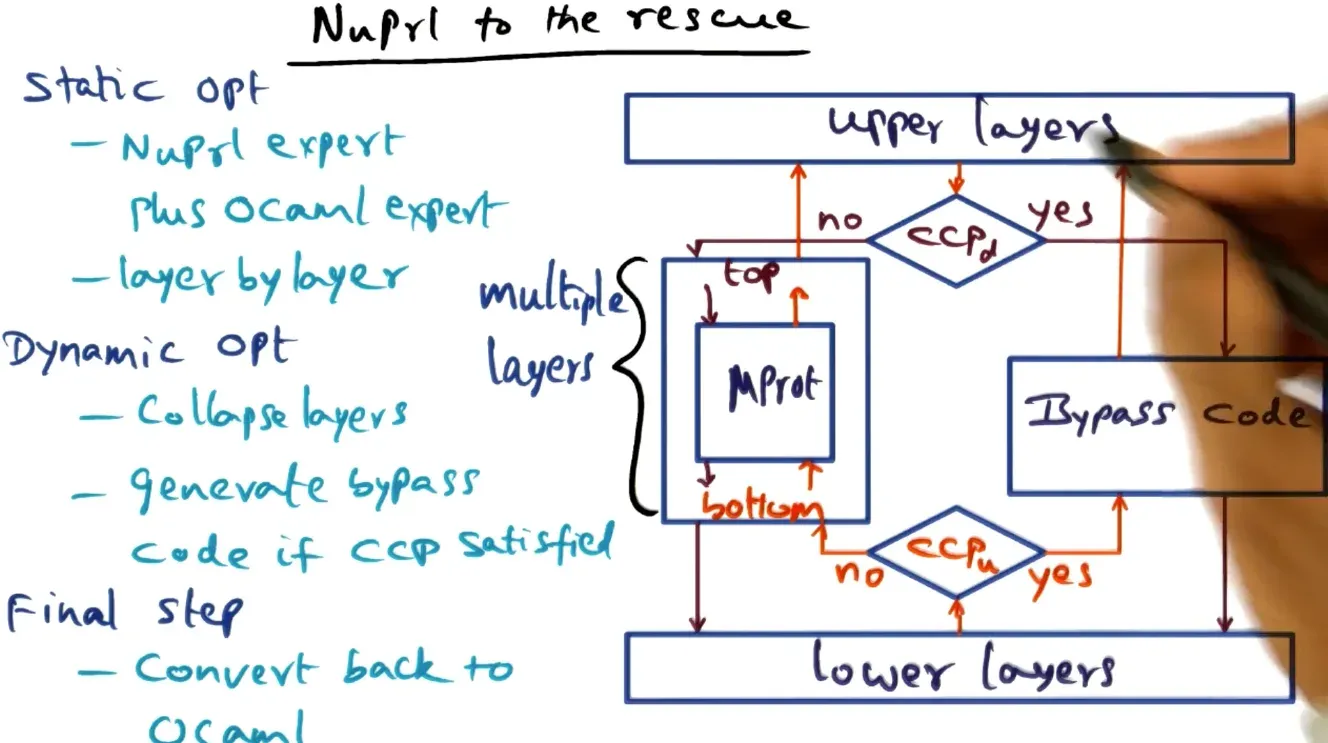 NuPrl to the rescue
Static opt
- NuPrl expert
plus OCaml expert
- layer by layer
Dynamic opt
- Collapse layers
- generate bypass
code if CCP satisfied
Final step
- Convert back to
OCaml
upper layers
no
CCPd
yes
multiple
layers
top
MProt
bottom
Bypass code
no
CCPu
yes
lower layers